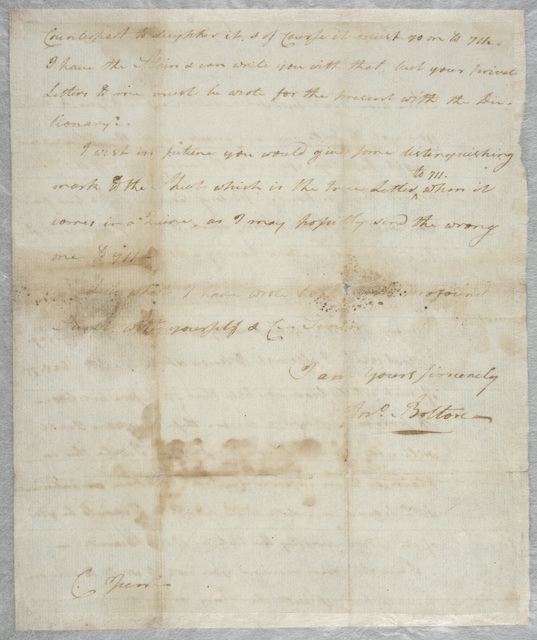 Counterpart to decypher it, & of Course it must go on to 711.
I have the & can write you with that, but your private
Letters to me must be wrote for the present with the Dic-
tionary.
I wish in future you would give some distinguishing
mark to the that which is the true Letter to 711. when it
comes in a , as I may possibly send the wrong
one to 711
I have wrote
yourself & Cn Senior
I am Yours sincerely
Jno. Bolton
C. Junr.